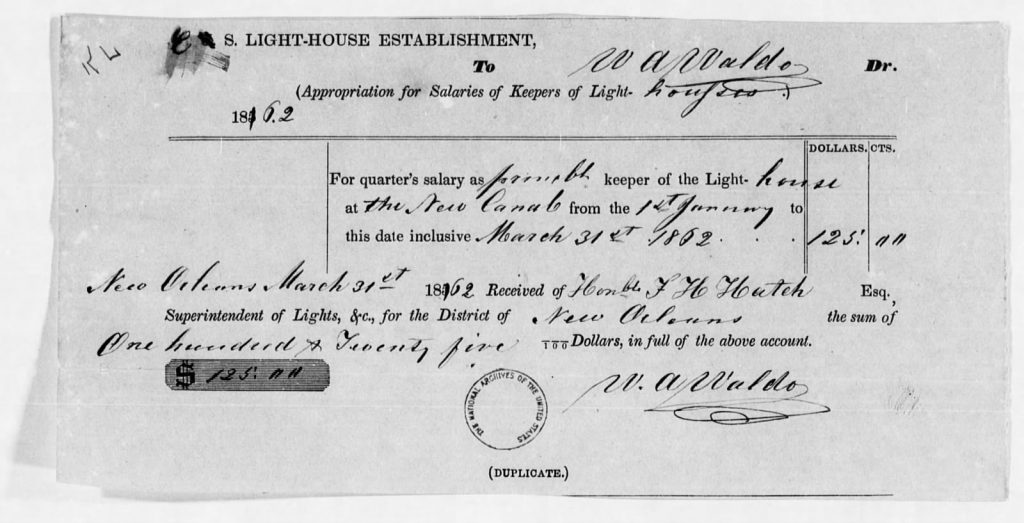 C S. LIGHT-HOUSE ESTABLISHMENT,
To W A Waldo Dr.
(Appropriation for Salaries of Keepers of Light-houses.)
1862
DOLLARS. CTS.
For quarter's salary as princbl keeper of the Light-house
at the New Canal from the 1st January to
this date inclusive March 31st 1862 . . . 125. 00
New Orleans March 31st 1862 Received of Honble F H Hatch Esq.,
Superintendent of Lights, &c., for the District of New Orleans the sum of
One hundred & Twenty five 100 Dollars, in full of the above account.
$ 125. 00
W. A Waldo
THE NATIONAL ARCHIVES OF THE UNITED STATES
(DUPLICATE.)